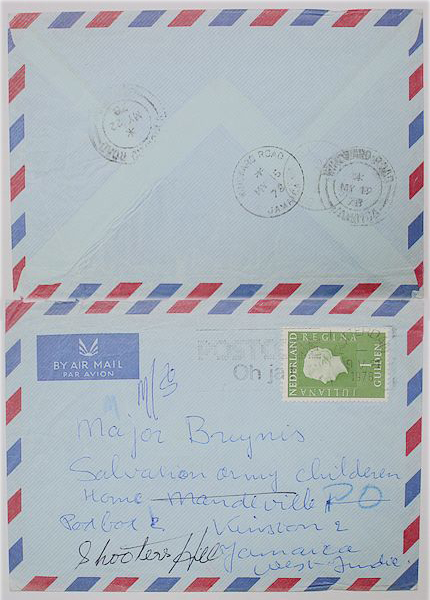 MY 22
ROAD
WINDWARD ROAD
MY 15
78
JAMAICA
WINDWARD ROAD
MY 18
78
JAMAICA
BY AIR MAIL
PAR AVION
POSTCO
Oh ja
NEDERLAND
REGINA
JULIANA
1
GULDEN
M/25
Major Bruynis
Salvation army children
Home Mandeville PO
Postbox 2 Kinston 2
Shooters Hill Jamaica
West-Indie.